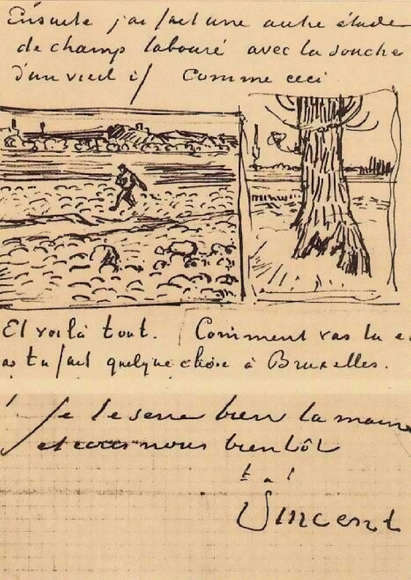 Ensuite j'ai fait une autre étude
de champ labouré avec la souche
d'un vieil if Comme ceci
Et voilà tout. Comment vas tu
as tu fait quelque chose à Bruxelles.
Je te serre bien la main
et nous bientôt
t. à t.
Vincent